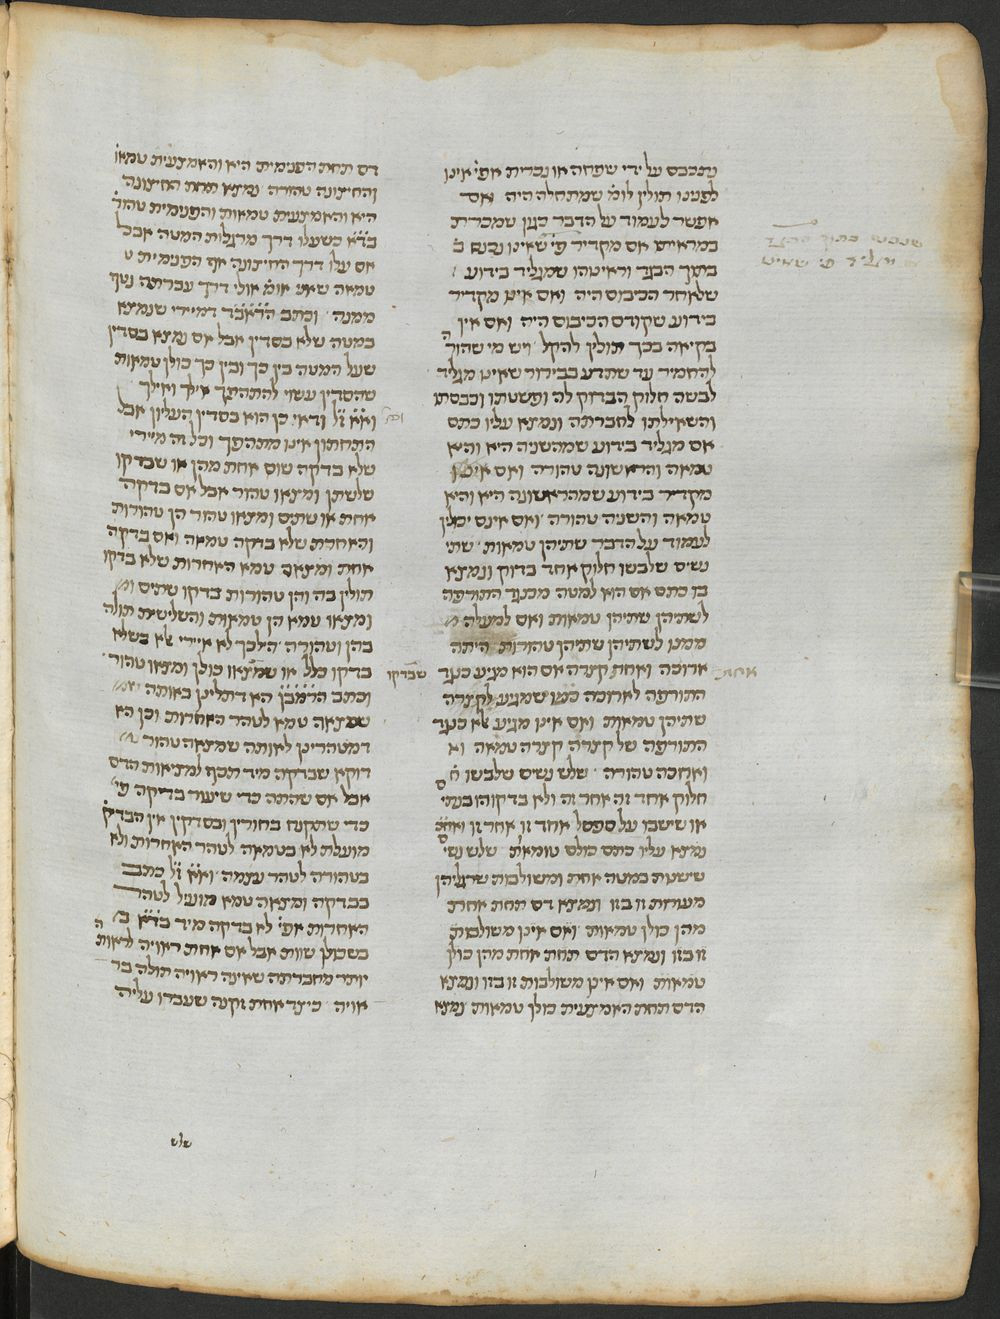 נתכבס על ידי שפחה או נכרית אפי' אינן
לפנינו תולין לומ' שמתחלה היה ואם
אפשר לעמוד על הדבר כגון שמכרת
במראיתו אם מקדיר פי' שאינו נכנס
בתוך הבגד וראיתהו שמגליד בידוע
שלאחר הכיבוס היה ואם אינו מקדיר
בידוע שקודם הכיבוס היה ואם אין
בקיאה בכך תולין להקל ויש מי שהור'
להחמיר עד שתדע בבירור שאינו מגליד
לבשה חלוק הבדוק לה ופשטתו וכבסתו
והשאילתו לחברתה ונמצא עליו כתם
אם מגליד בידוע שמהשניה היא והיא
טמאה והראשונה טהורה ואם אינו
מקדיר בידוע שמהראשונה היא והיא
טמאה והשניה טהורה ואם אינם יכולין
לעמוד על הדבר שתיהן טמאות שתי
נשים שלבשו חלוק אחד בדוק ונמצא
בו כתם אם הוא למטה מכנגד התורפה
לשתיהן שתיהן טמאות ואם למעלה
ממנו לשתיהן שתיהן טהורות היתה
ארוכה ואחת קצרה אם הוא מגיע כנגד
התורפה לארוכה כמו שמגיע לקצרה
שתיהן טמאות ואם אינו מגיע אלא כנגד
התורפה של קצרה קצרה טמאה וא
וארוכה טהורה שלש נשים שלבשו
חלוק אחד זה אחר זה ולא בדקוהו בנתי'
או שישבו על ספסל אחד זו אחר זו
נמצא עליו כתם כולם טומאת שלש נשי'
שישנות במטה אחת ומשולבות שרגליהן
מעורות זו בזו ונמצא דם תחת אחת
מהן כולן טמאות ואם אינן משולבות
זו בזו ונמצא הדם תחת אחת מהן כולן
טמאות ואם אינן משולבות זו בזו ונמצא
הדם תחת האמצעית כולן טמאות נמצא
דם תחת הפנימית היא והאמצעית טמאו'
והחיצונה טהורה נמצא תחת החיצונה
היא והאמצעית טמאות והפנימית טהור'
בד"א כשעלו דרך מרגלות המטה אבל
אם עלו דרך החיצונה אף הפנימית
טמאה שאני אומ' אולי דרך עברתה נטף
ממנה וכתב הראב"ד דמיירי שנמצא
במטה שלא בסדין אבל אם נמצא בסדין
שעל המטה בין כך ובין כך כולן טמאות
שהסדין עשוי להתהפך אילך ואילך
וא"א ז"ל ודאי כן הוא בסדין העליון אבל
התחתון אינו מתהפך וכל זה מיירי
שלא בדקה שום אחת מהן או שבדקו
שלשתן ומצאו טהור אבל אם בדקה
אחת או שתים ומצאו טהור הן טהורות
והאחרת שלא בדקה טמאה ואם בדקה
אחת ומצאה טמא האחרות שלא בדקו
תולין בה והן טהורות בדקו שתים
ומצאו טמא הן טמאות והשלישית תולה
בהן וטהורה הילכך לא איירי אלא בשלא
בדקו כלל או שמצאו כולן ומצאו טהור
שבדקו
וכתב הרמב"ן הא דתלינן באותה
שמצאה טמא לטהר האחרות וכן הא
דמטהרינן לאותה שמצאה טהור
דוקא שבדקה מיד תכף למציאות הדם
אבל אם שהתה כדי שיעור בדיקה פי'
כדי שתקנח בחורין ובסדקין אין הבדיק'
מועלת לא בטמאה לטהר האחרות ולא
בטהורה לטהר עצמה וא"א ז"ל כתב
בבדקה ומצאה טמא מועיל לטהר
האחרות אפי' לא בדקה מיד בד"א
בשכולן שוות אבל אם אחת ראויה לראות
יותר מחברתה שאינה ראויה תולה בר
אויה כיצד אחת זקנה שעברו עליה
שלש